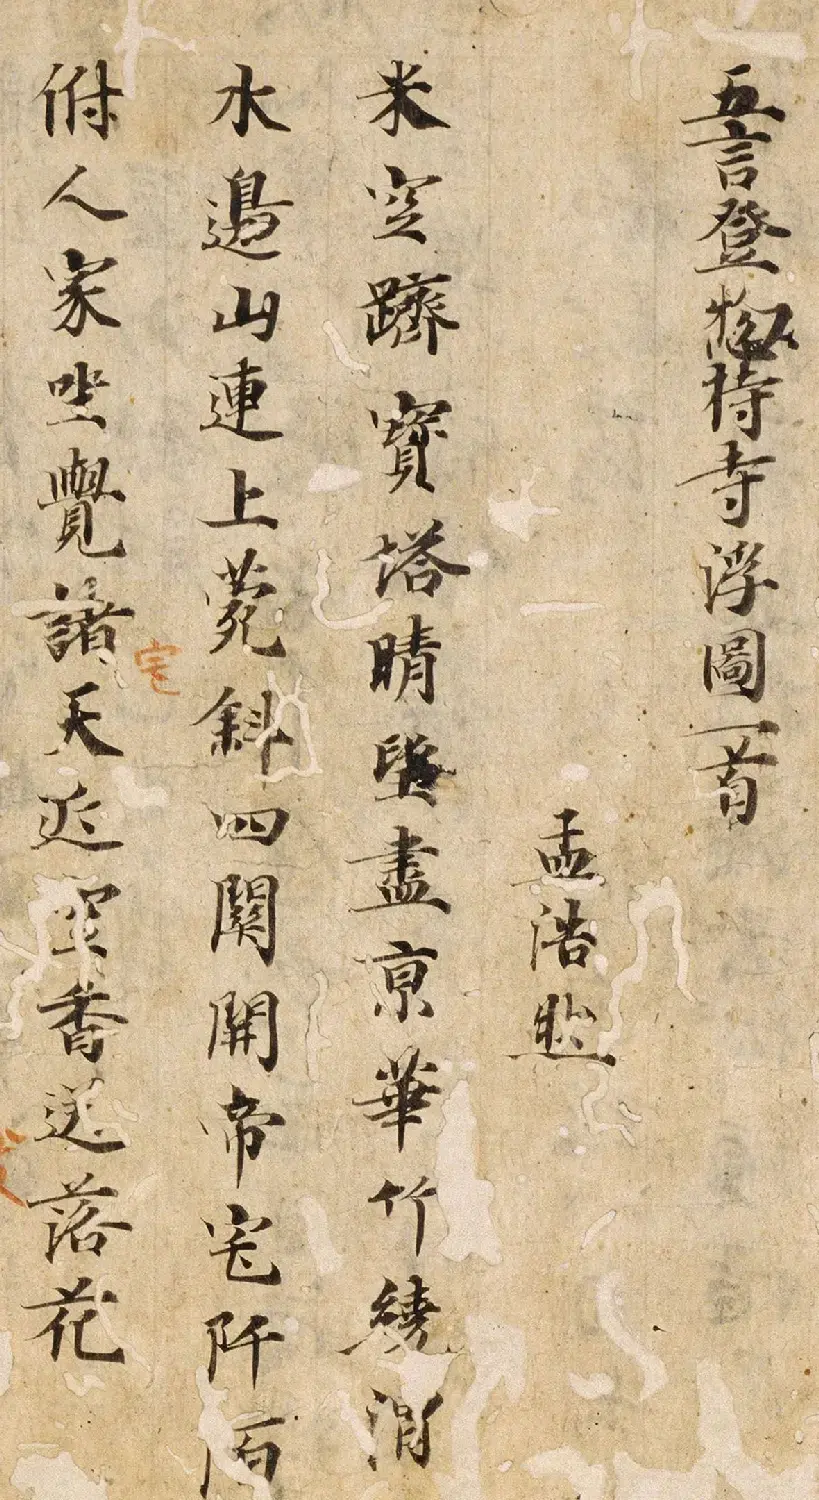 五言登惣持寺浮圖一首
孟浩然
米空躋寶塔晴望盡京華竹繞渭
水邊山連上菀斜四關開帝宅阡陌
俯人家坐覺諸天近空香送落花
宅